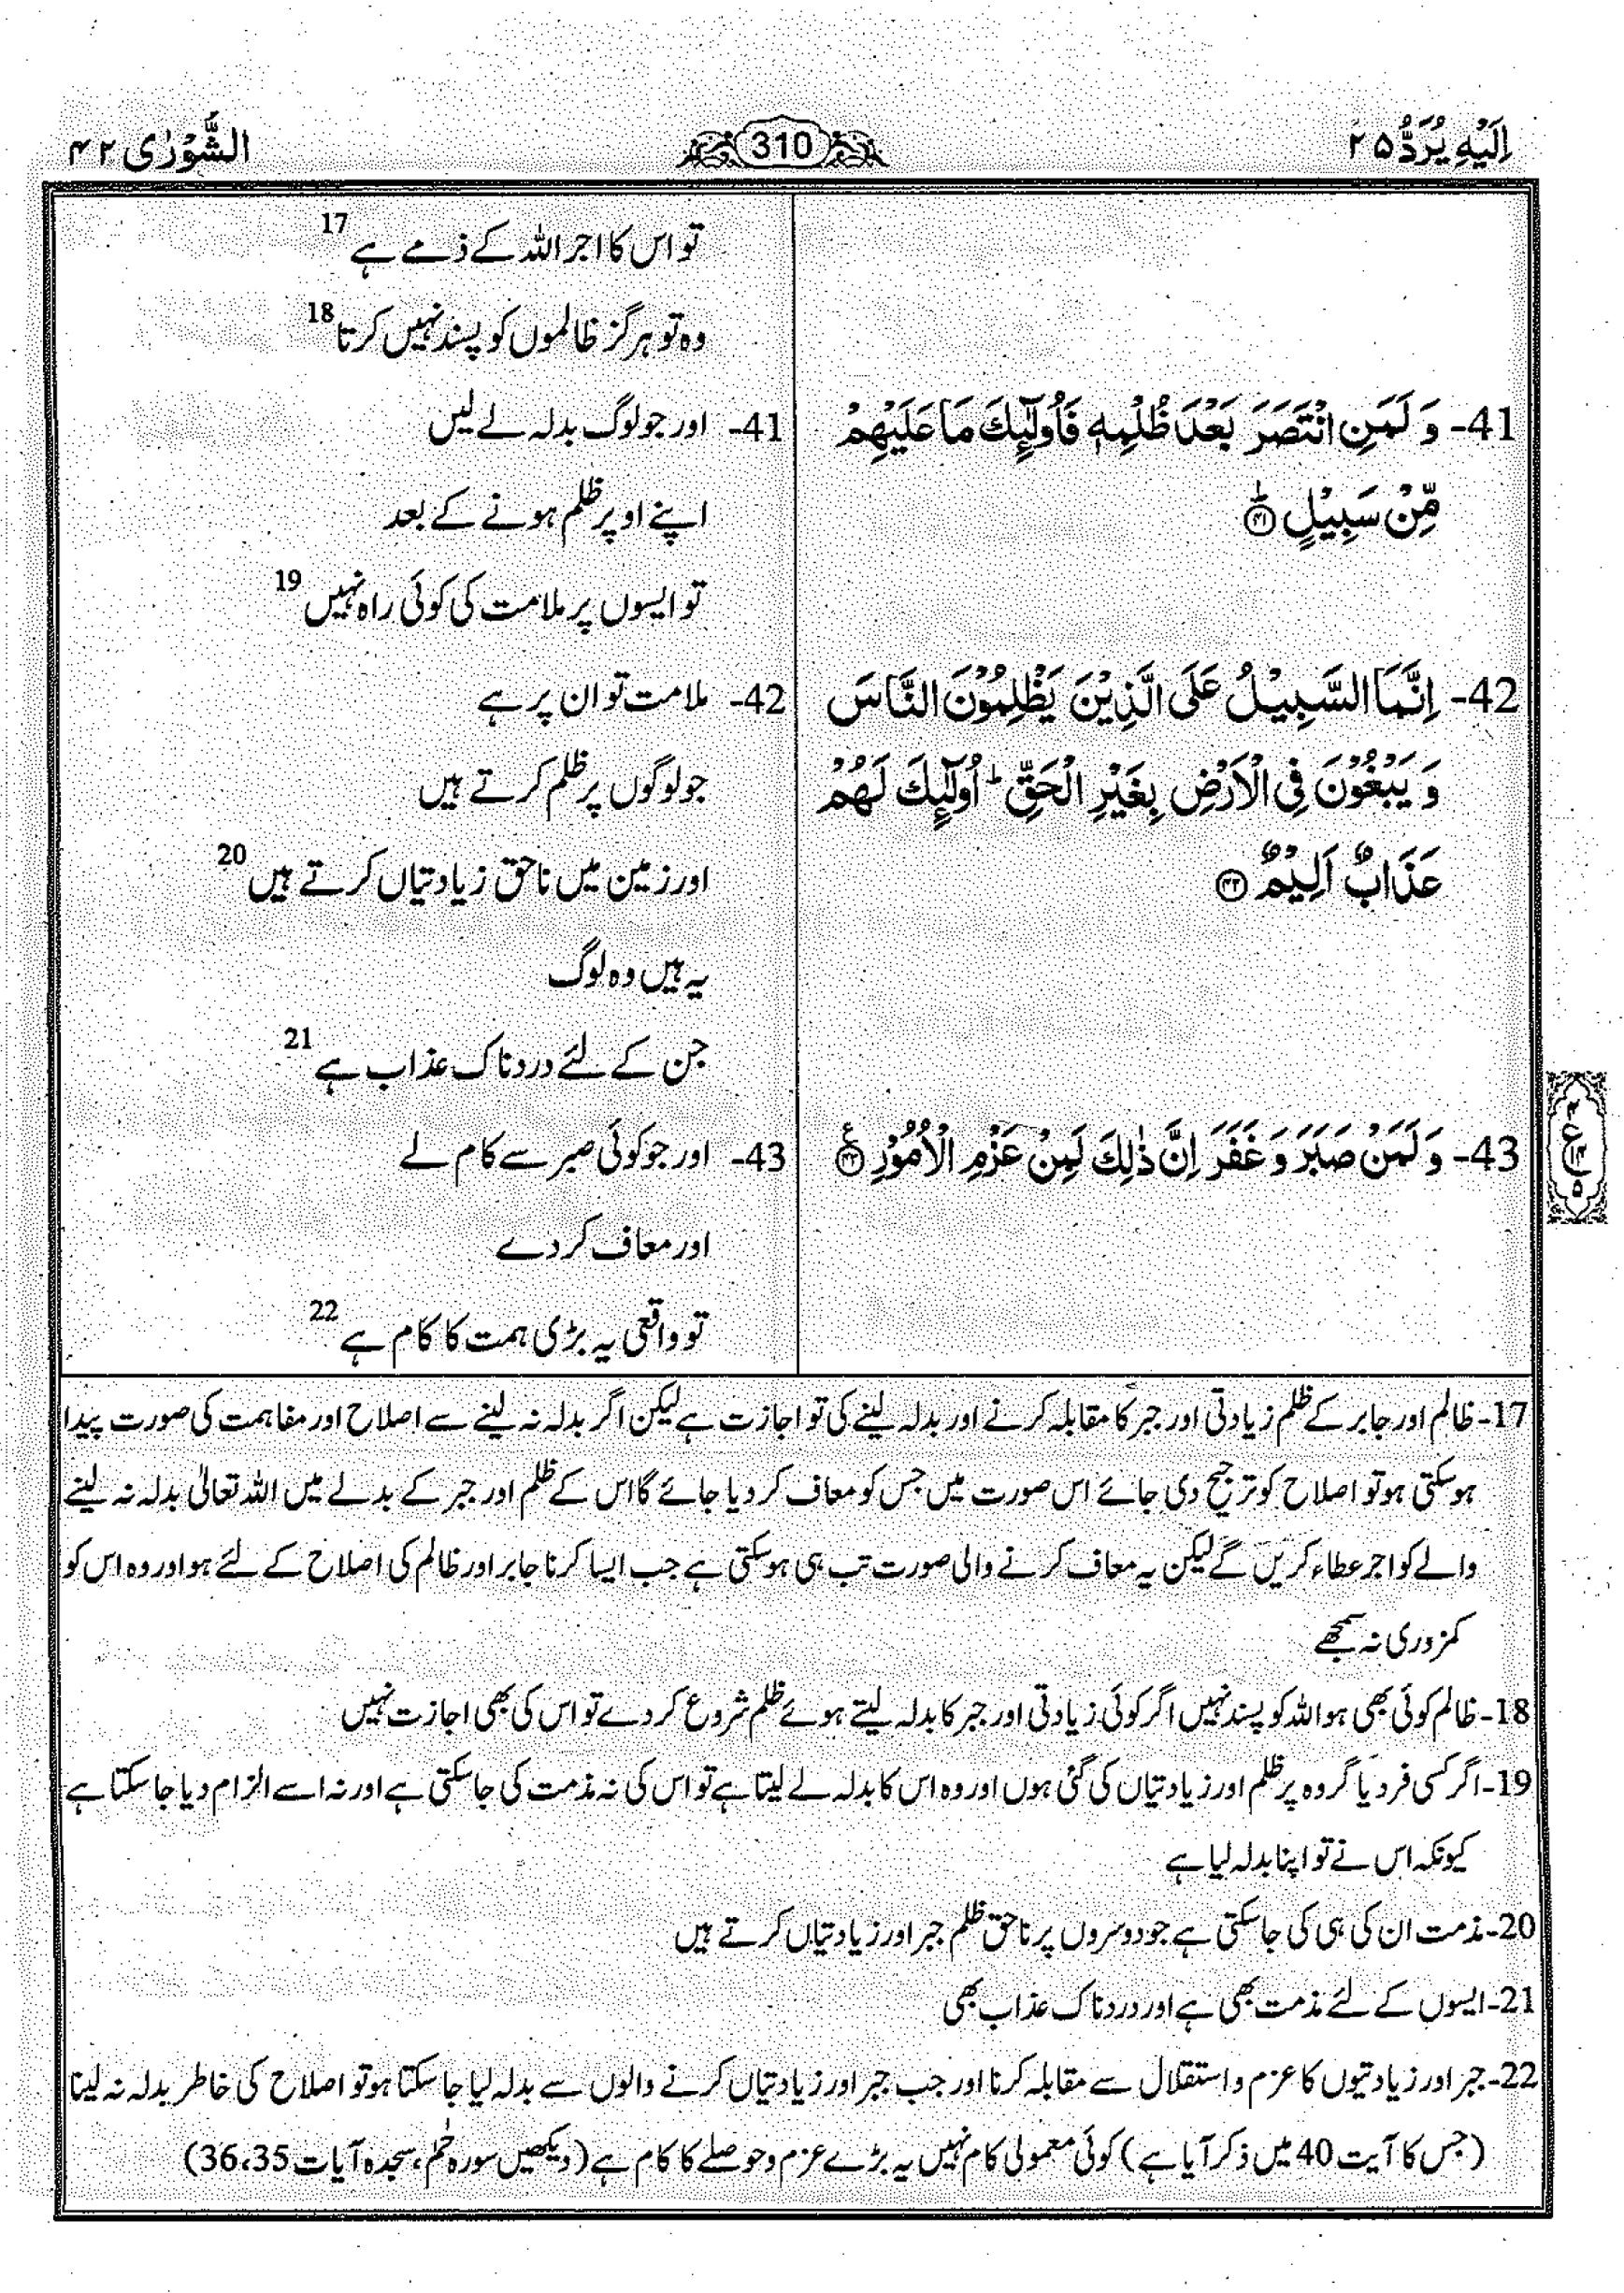 اِلَيْهِ يُرَدُّ ٢٥
310
الشُّوْرٰى ٤٢
تو اس کا اجر اللہ کے ذمے ہے 17
وہ تو ہرگز ظالموں کو پسند نہیں کرتا 18
41- وَ لَمَنِ انْتَصَرَ بَعْدَ ظُلْمِهٖ فَاُولٰٓئِكَ مَا عَلَيْهِمْ
مِّنْ سَبِيْلٍ ؕ ﴿۴۱﴾
41- اور جو لوگ بدلہ لے لیں
اپنے اوپر ظلم ہونے کے بعد
تو ایسوں پر ملامت کی کوئی راہ نہیں 19
42- اِنَّمَا السَّبِيْلُ عَلَى الَّذِيْنَ يَظْلِمُوْنَ النَّاسَ
وَ يَبْغُوْنَ فِي الْاَرْضِ بِغَيْرِ الْحَقِّ ؕ اُولٰٓئِكَ لَهُمْ
عَذَابٌ اَلِيْمٌ ﴿۴۲﴾
42- ملامت تو ان پر ہے
جو لوگوں پر ظلم کرتے ہیں
اور زمین میں ناحق زیادتیاں کرتے ہیں 20
یہ ہیں وہ لوگ
جن کے لئے دردناک عذاب ہے 21
43- وَ لَمَنْ صَبَرَ وَ غَفَرَ اِنَّ ذٰلِكَ لَمِنْ عَزْمِ الْاُمُوْرِ ﴿۴۳﴾
43- اور جو کوئی صبر سے کام لے
اور معاف کر دے
تو واقعی یہ بڑی ہمت کا کام ہے 22
۴
ع
۱۴
۵
17- ظالم اور جابر کے ظلم زیادتی اور جبر کا مقابلہ کرنے اور بدلہ لینے کی تو اجازت ہے لیکن اگر بدلہ نہ لینے سے اصلاح اور مفاہمت کی صورت پیدا
ہو سکتی ہو تو اصلاح کو ترجیح دی جائے اس صورت میں جس کو معاف کر دیا جائے گا اس کے ظلم اور جبر کے بدلے میں اللہ تعالیٰ بدلہ نہ لینے
والے کو اجر عطاء کریں گے لیکن یہ معاف کرنے والی صورت تب ہی ہو سکتی ہے جب ایسا کرنا جابر اور ظالم کی اصلاح کے لئے ہو اور وہ اس کو
کمزوری نہ سمجھے
18- ظالم کوئی بھی ہو اللہ کو پسند نہیں اگر کوئی زیادتی اور جبر کا بدلہ لیتے ہوئے ظلم شروع کر دے تو اس کی بھی اجازت نہیں
19- اگر کسی فرد یا گروہ پر ظلم اور زیادتیاں کی گئی ہوں اور وہ اس کا بدلہ لے لیتا ہے تو اس کی نہ مذمت کی جا سکتی ہے اور نہ اسے الزام دیا جا سکتا ہے
کیونکہ اس نے تو اپنا بدلہ لیا ہے
20- مذمت ان کی ہی کی جا سکتی ہے جو دوسروں پر ناحق ظلم جبر اور زیادتیاں کرتے ہیں
21- ایسوں کے لئے مذمت بھی ہے اور دردناک عذاب بھی
22- جبر اور زیادتیوں کا عزم و استقلال سے مقابلہ کرنا اور جب جبر اور زیادتیاں کرنے والوں سے بدلہ لیا جا سکتا ہو تو اصلاح کی خاطر بدلہ نہ لینا
(جس کا آیت 40 میں ذکر آیا ہے) کوئی معمولی کام نہیں یہ بڑے عزم و حوصلے کا کام ہے (دیکھیں سورہ حٰمٓ، سجدہ آیات 36،35)